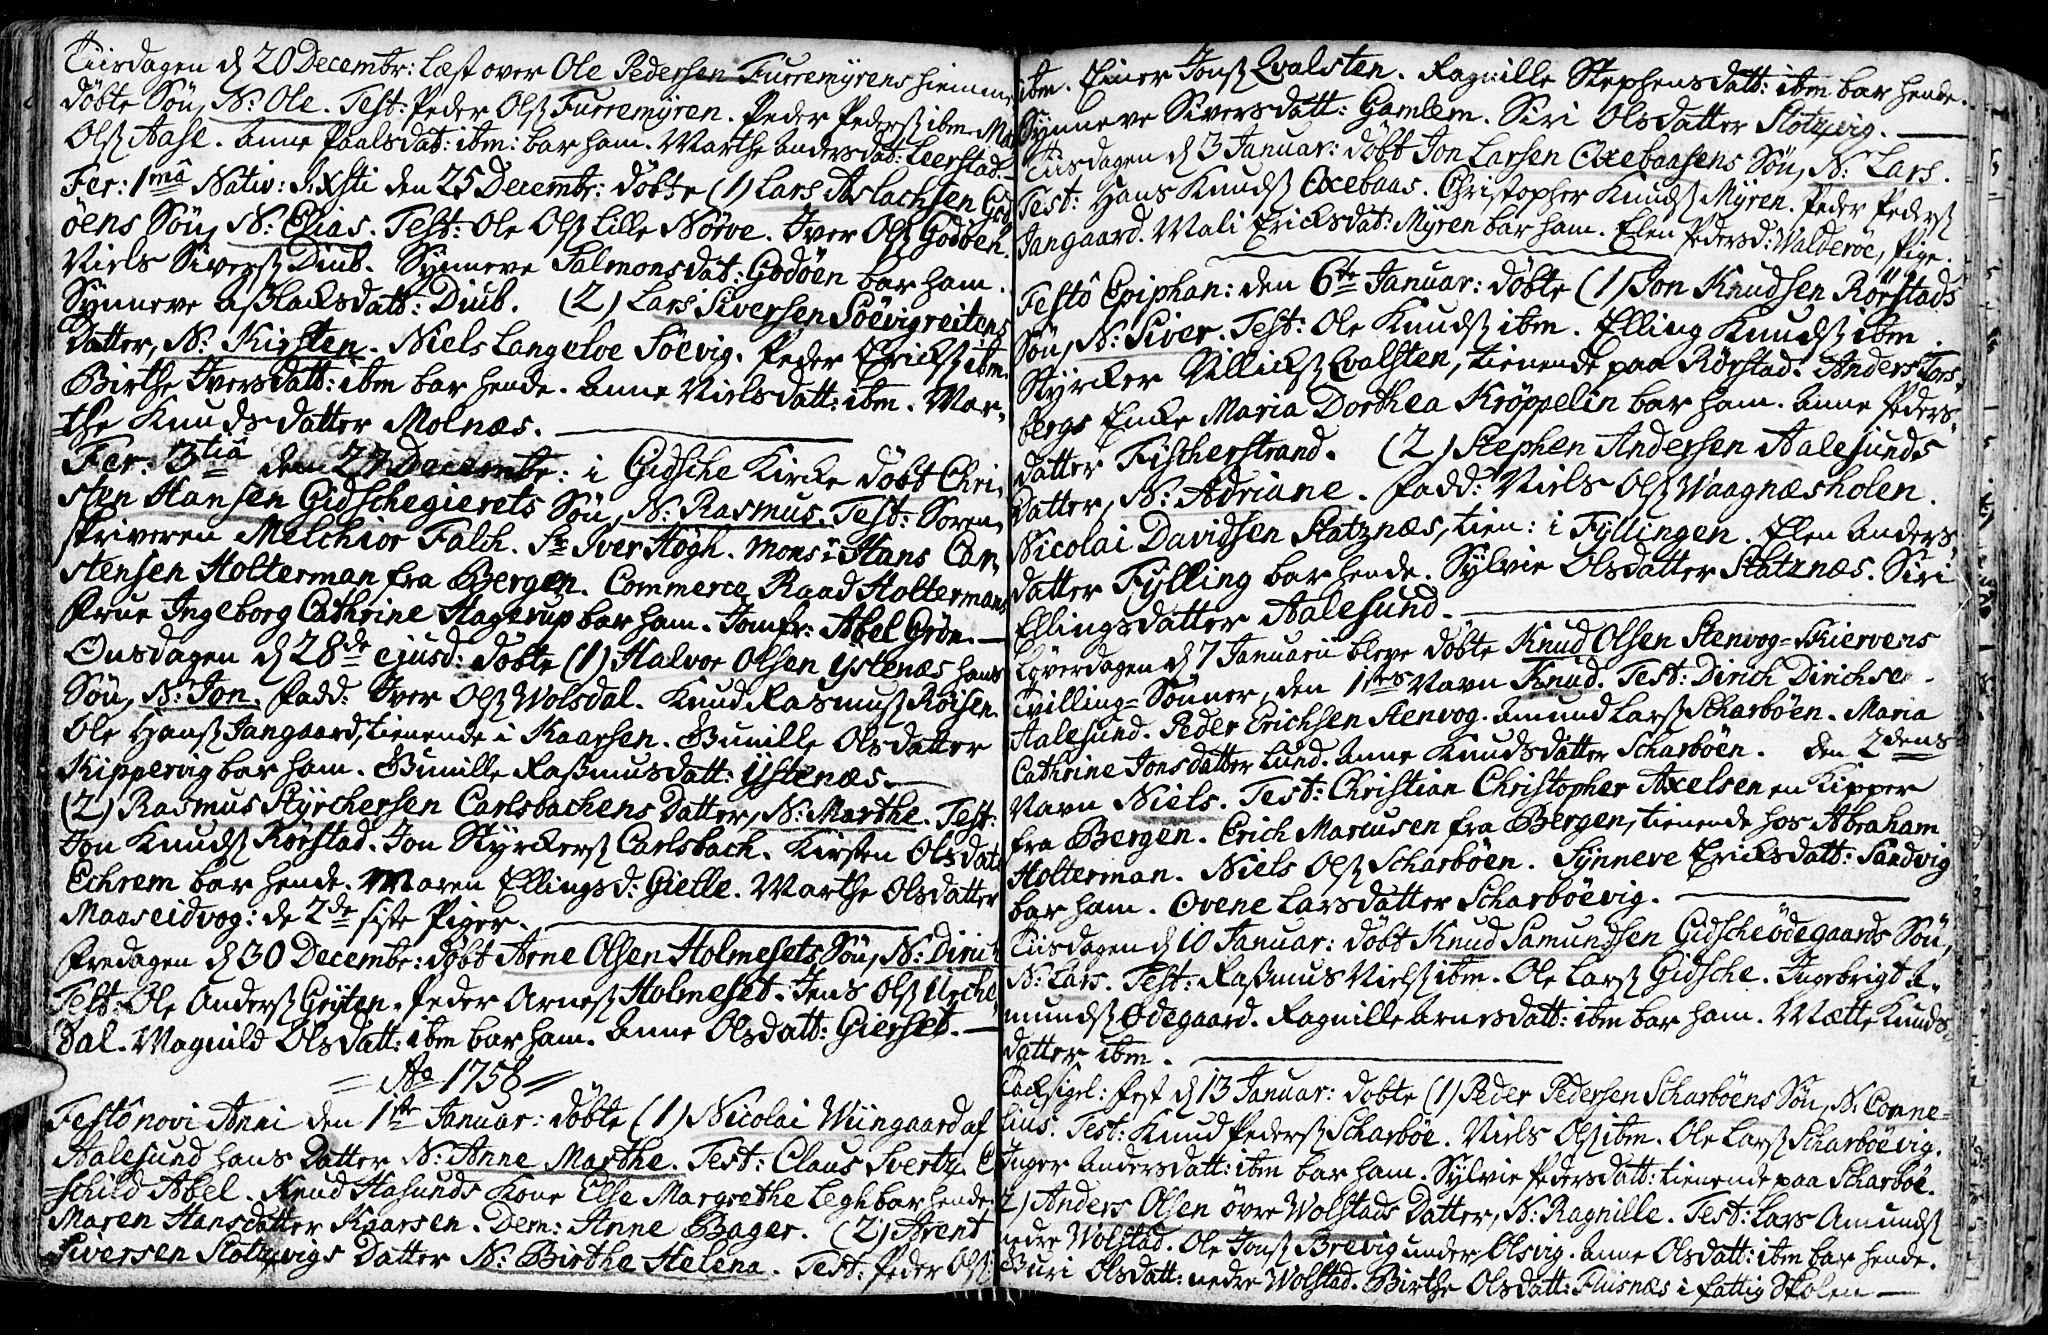 Tiirsdagen d 20 Decembr: læst over Ole Pedersen Furremyrens hiemme
døbte Søn, N: Ole. Test: Peder Olsß Furremyren. Peder Pedersß ibm.
Olsß Aase. Anne Paalsdat: ibm: bar ham. Marthe Andersdat: Leerstad.
Fer: 1mâ Nativ: Xsti den 25 Decembr: døbte (1) Lars Aslachsen God
øens Søn, N: Elias. Test: Ole Olsß Lille Nørve. Iver Olsß Godøen.
Niels Siversß Diub. Synneve Salmonsdat: Godøen bar ham.
Synneve Aslacksdatt: Diub. (2) Lars Siversen Søevigreitens
Datter, N: Kirsten. Niels Langeloe Søevig. Peder Ericksß ibm.
Birthe Iversdatt: ibm bar hende. Anne Nielsdatt: ibm. Mar-
the Knudsdatter Molnæs.
Fer: 3tiâ den 27 Decembr: i Gidsche Kircke døbt Chri-
sten Hansen Gidschegierets Søn, N: Rasmus. Test: Soren-
skriveren Melchior Falch. Sr Iver Høgh. Monsr Hans Car-
stensen Holterman fra Bergen. Commerce Raad Holtermans
Frue Ingeborg Cathrine Hagerup bar ham. Jomfr: Abel Grön.
Onsdagen d 28de ejusd: døbte (1) Halvor Olsen Ystenæs hans
Søn, N: Jon. Fadd: Iver Olsß Wolsdal. Knud Rasmusß Röisen.
Ole Hansß Jangaard, tienende i Kaarsen. Gunille Olsdatter
Kippervig bar ham. Gunille Rasmusdatt: Ystenæs.
(2) Rasmus Styrchersen Carlsbachens Datter, N: Marthe. Test:
Jon Knudsß Rørstad. Jon Styrckersß Carlsbach. Kirsten Olsdatt
Echrem bar hende. Maren Ellingsd: Gielle. Marthe Olsdatter
Maaseidvog: de 2de siste Piger.
Fredagen d 30 Decembr: døbt Arne Olsen Holmesets Søn, N: Dirich
Test: Ole Andersß Gryten. Peder Arnesß Holmeset. Jens Olsß Urke
dal. Magnild Olsdatt: ibm bar ham. Anne Olsdatt: Gierset.
Ao 1758
Festô novi Anni den 1ste Januar: døbte (1) Nicolai Wiingaard af
Aalesund hans Datter N: Anne Marthe. Test: Claus Svertz.
schild Abel. Knud Hasunds Kone Else Margrethe Legh bar hende.
Maren Hansdatter Kaarsen. Dem: Anne Bager. (2) Arent
Siversen Slotzvigs Datter N: Birthe Helena. Test: Peder Olsß
ibm. Einer Jonsß Qvalsten. Ragnille Stephensdatt: ibm bar hende.
Synneve Siversdatt: Gamlem. Siri Olsdatter Slotzvig.
Tiisdagen d 3 Januar: døbt Jon Larsen Oxebaasens Søn, N: Lars.
Test: Hans Knudsß Oxebaas. Christopher Knudsß Myren. Peder Pedersß
Jangaard. Mali Ericksdat: Myren bar ham. Elen Pedersd: Walderøe, Pige.
Festô Epiphan: den 6te Januar: døbte (1) Jon Knudsen Rørstads
Søn, N: Siver. Test: Ole Knudsß ibm. Elling Knudsß ibm.
Styrcker Villicksß Qvalsten, tienende paa Rørstad. Anders Tors-
bergs Enke Maria Dorthea Kröppelin bar ham. Anne Peders-
datter Fistherstrand. (2) Stephen Andersen Aalesunds
Datter, N: Adriane. Fadd: Niels Olsß Waagnæsholen.
Nicolai Davidsen Slatznæs, tien: i Fyllingen. Elen Anders
datter Fylling bar hende. Sylvie Olsdatter Slatznæs. Siri
Ellingsdatter Aalesund.
Løverdagen d 7 Januarii bleve døbte Knud Olsen Stenvog-Skiervens
Tvilling-Sønner, den 1stes Navn Knud. Test: Dirich Dirichsen
Aalesund. Peder Erichsen Stenvog. Amund Larsß Scharbøen. Maria
Cathrine Jonsdatter Lund. Anne Knudsdatter Scharbøen. den 2dens
Navn Niels. Test: Christian Christopher Axelsen en Kipper
fra Bergen. Erich Marcusen fra Bergen, tienende hos Abraham
Holterman. Niels Olsß Scharbøen. Synneve Ericksdatt: Sandvig
bar ham. Ovene Larsdatter Scharbøevig.
Tiisdagen d 10 Januar: døbt Knud Samundsen Gidscheødegaards Søn,
N: Lars. Test: Rasmus Nielsß ibm. Ole Larsß Gidsche. Ingebrigt A-
mundsß Ødegaard. Ragnille Arnesdatt: ibm bar ham. Mætte Knuds-
datter ibm.
Tacksigel: Fest d 13 Januar: døbte (1) Peder Pedersen Scharbøens Søn, N: Corne-
lius. Test: Knud Pedersß Scharbøe. Niels Olsß ibm. Ole Larsß Scharbøevig.
Inger Andersdatt: ibm bar ham. Sylvie Pedersdatt: tienende paa Scharbøe.
2) Anders Olsen øvre Wolstads Datter, N: Ragnille. Test: Lars Amundsß
nedre Wolstad. Ole Jonsß Brevig under Olsvig. Anne Olsdatt: ibm bar hende.
Guri Olsdatt: nedre Wolstad. Birthe Olsdatt: Fliisnæs i fattig Skolen